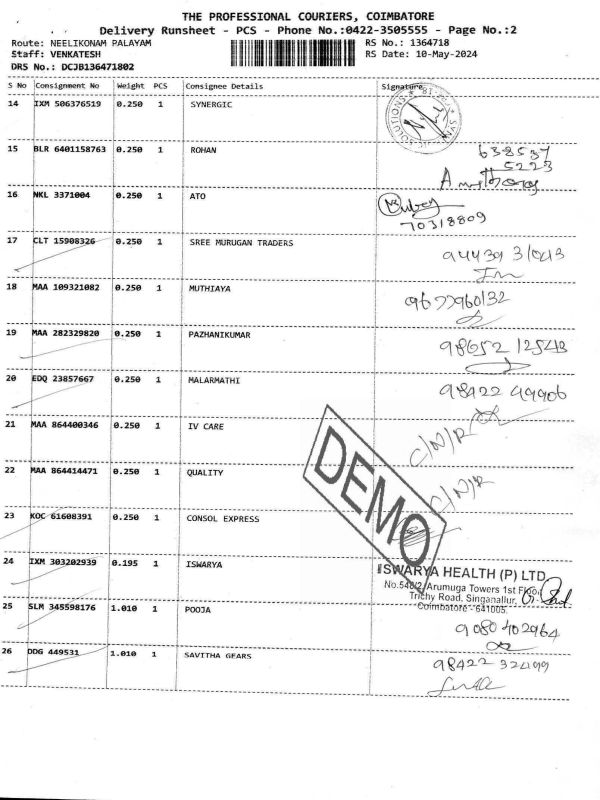 THE PROFESSIONAL COURIERS, COIMBATORE
Delivery Runsheet - PCS - Phone No.:0422-3505555 - Page No.:2
Route: NEELIKONAM PALAYAM RS No.: 1364718
Staff: VENKATESH RS Date: 10-May-2024
DRS No.: DCJB136471802
S No Consignment No Weight PCS Consignee Details Signature
14 IXM 506376519 0.250 1 SYNERGIC
SOLUTIONS
15 BLR 6401158763 0.250 1 ROHAN 638537
5223
16 NKL 3371004 0.250 1 ATO
70318809
17 CLT 15908326 0.250 1 SREE MURUGAN TRADERS
18 MAA 109321082 0.250 1 MUTHIAYA 9677960132
19 MAA 282329820 0.250 1 PAZHANIKUMAR 98652 12543
20 EDQ 23857667 0.250 1 MALARMATHI 98422 49906
21 MAA 864400346 0.250 1 IV CARE C/N/R
22 MAA 864414471 0.250 1 QUALITY C/N/R
DEMO
23 KOC 61608391 0.250 1 CONSOL EXPRESS
24 IXM 303202939 0.195 1 ISWARYA ISWARYA HEALTH (P) LTD
No.546/2, Arumuga Towers 1st Floor
Trichy Road, Singanallur,
Coimbatore - 641005.
25 SLM 345598176 1.010 1 POOJA 9080402964
26 DDG 449531 1.010 1 SAVITHA GEARS 98422 32499